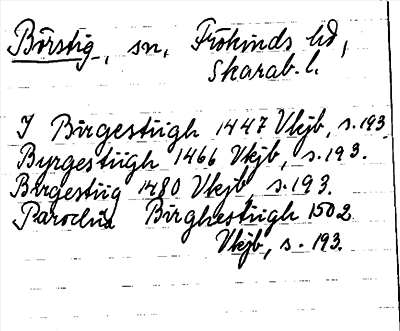 Börstig, sn, Frökinds hd,
Skarab. l.
I Birgestiigh 1447 Vkjb, s. 193.
Byrgestiigh 1466 Vkjb, s. 193.
Birgestiig 1480 Vkjb, s. 193.
Parochia Birghestiigh 1502
Vkjb, s. 193.